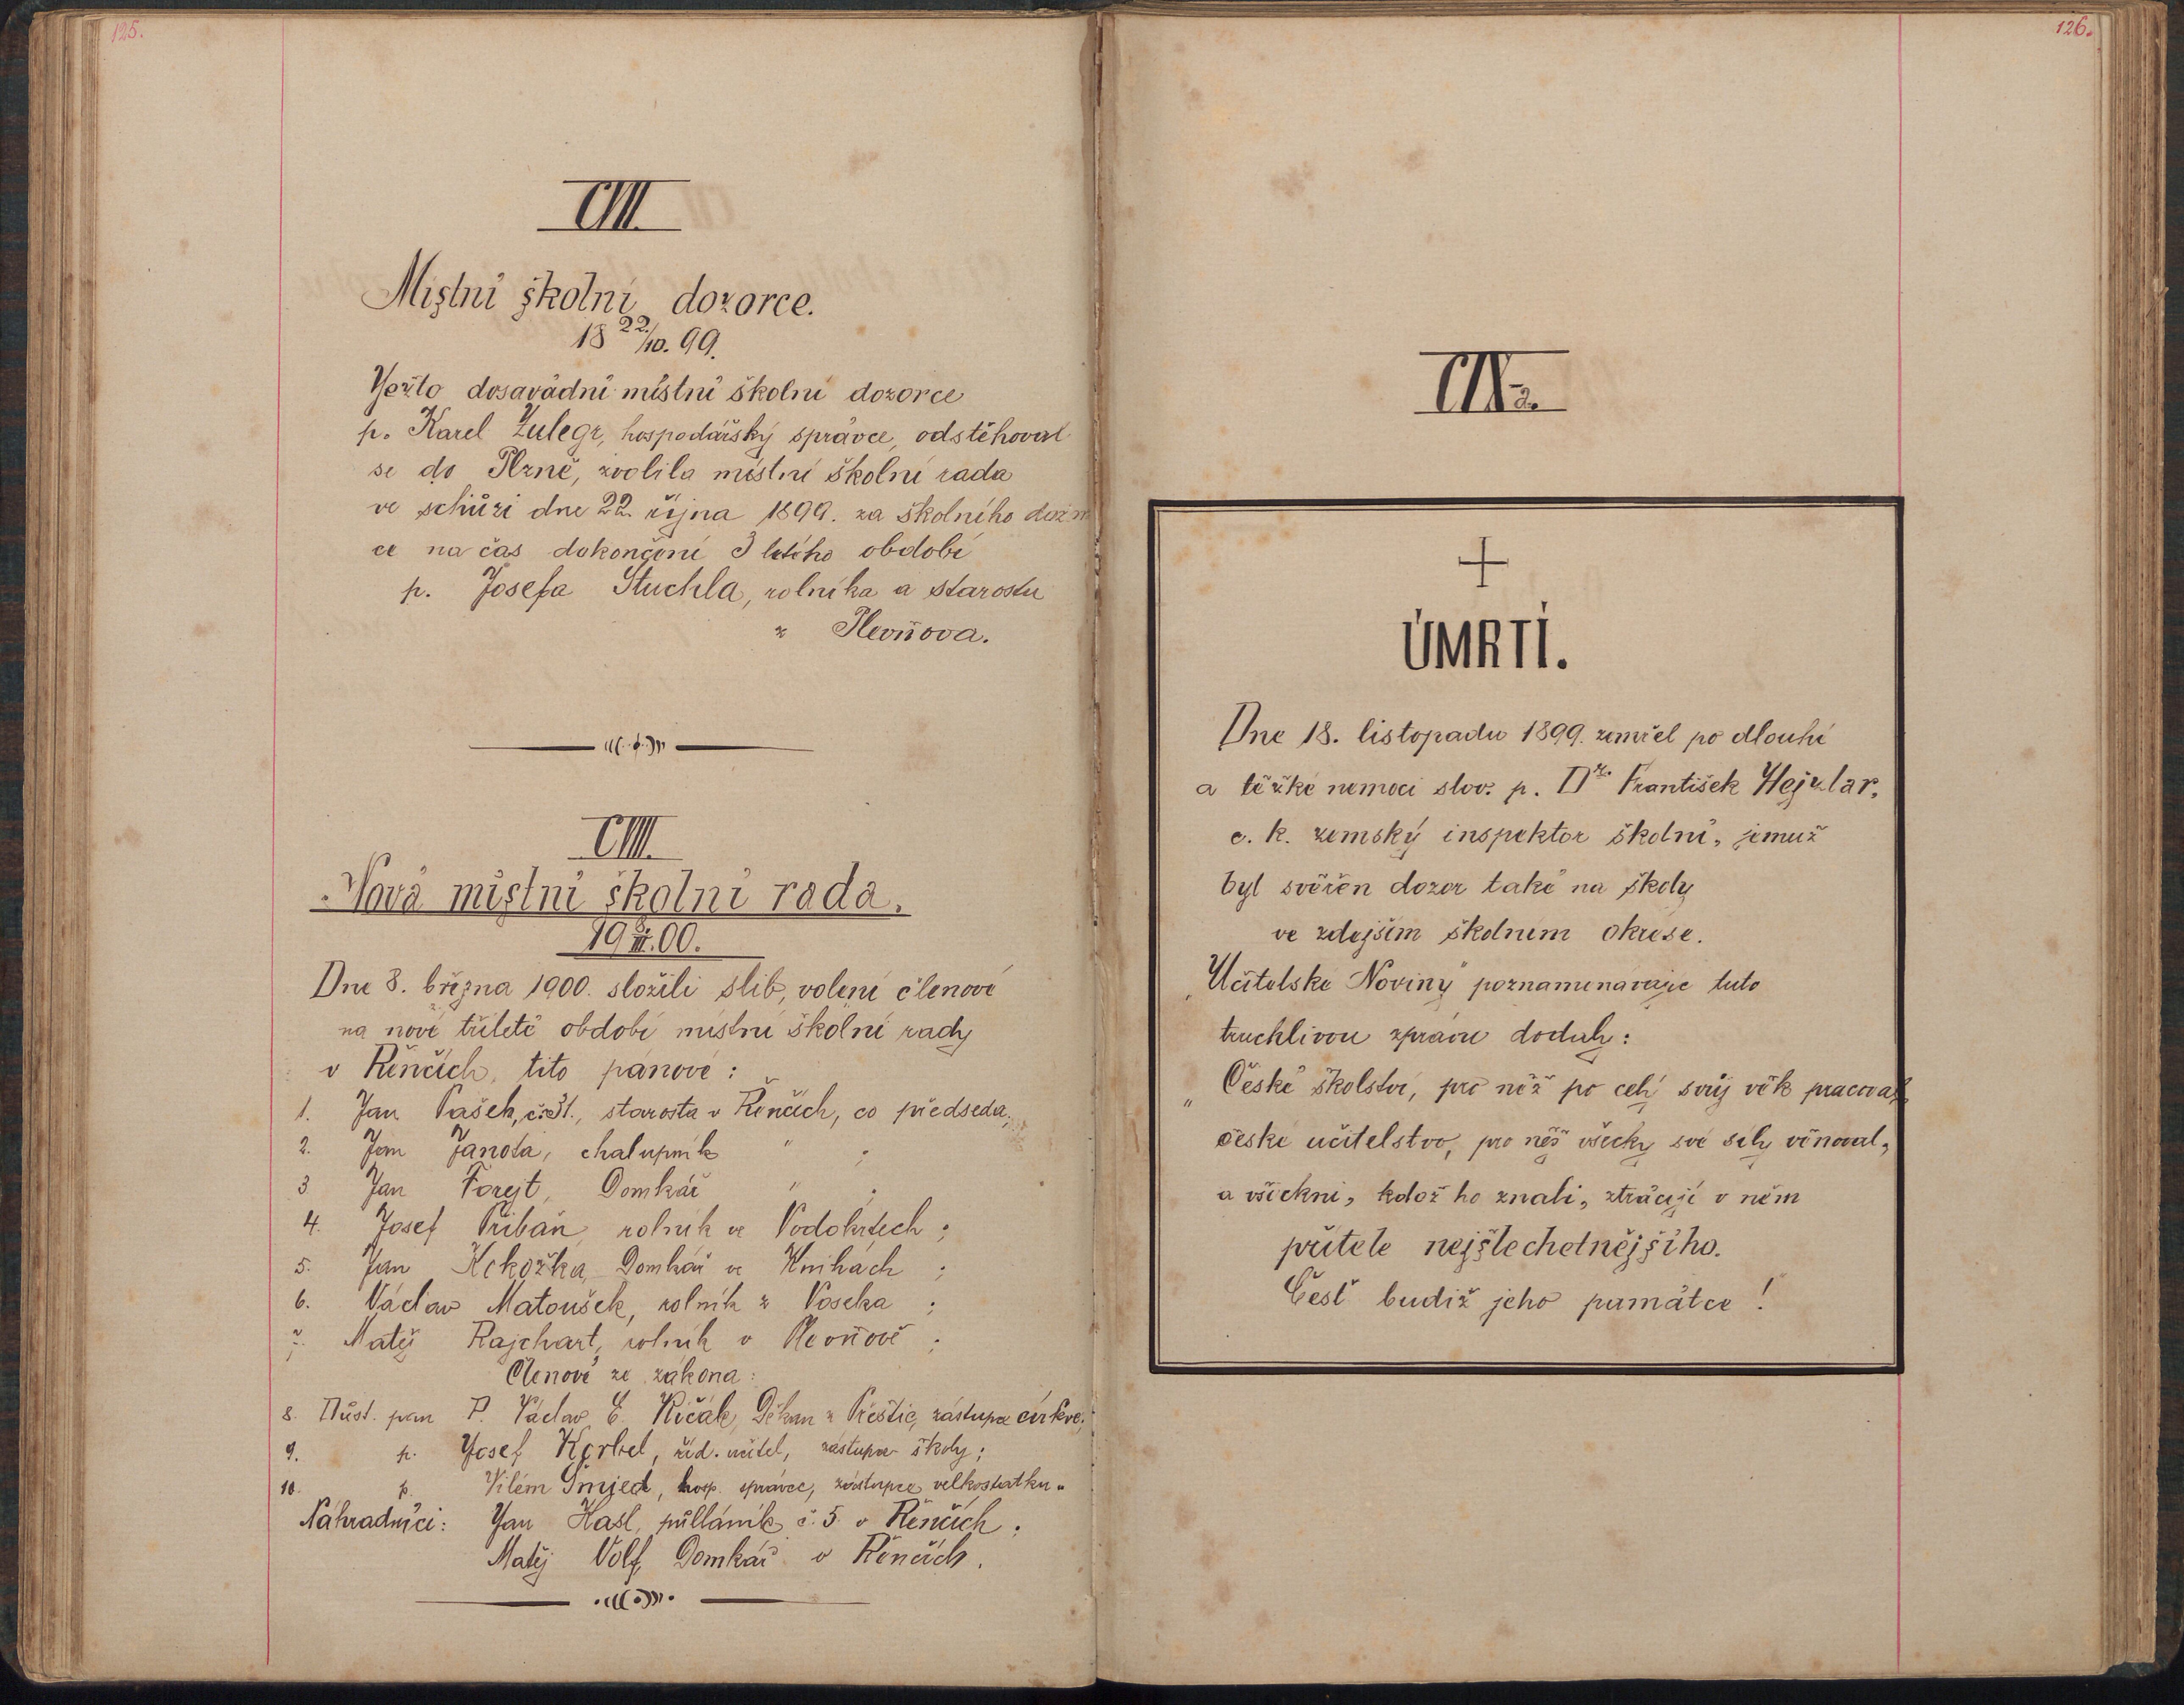 125.
CVII.
Místní školní dozorce.
18 22./10. 99.
Ježto dosavádní místní školní dozorce
p. Karel Zulegr, hospodářský správce, odstěhoval
se do Plzně, zvolila místní školní rada
ve schůzi dne 22. října 1899. za školního dozor
ce na čas dokončení 3 letého období
p. Josefa Stuchla, rolníka a starostu
z Plevňova.
CVIII.
Nová místní školní rada.
19 8/III. 00.
Dne 8. března 1900. složili slib, volení členové
na nové tříleté období místní školní rady
v Řenčích, tito pánové:
1. Jan Pašek, č. 31., starosta v Řenčích, co předseda;
2. Jan Janota, chalupník " ;
3. Jan Forejt, Domkář " ;
4. Josef Přibáň, rolník ve Vodokrtech;
5. Jan Kokožka, Domkář ve Knihách ;
6. Václav Matoušek, rolník z Voseka ;
7. Matěj Rajchart, rolník v Plevňově ;
Členové ze zákona:
8. Důst. pan P. Václav E. Říčák, Děkan z Přeštic, zástupce církve;
9. p. Josef Korbel, říd. učitel, zástupce školy;
10. p. Vilém Šmejed, hosp. správce, zástupce velkostatku.
Náhradníci: Jan Hasl, půlláník č. 5. v Řenčích;
Matěj Volf, Domkář v Řenčích.
126.
ÚMRTÍ.
Dne 18. listopadu 1899. zemřel po dlouhé
a těžké nemoci slov. p. Dr. František Hejzlar,
c. k. zemský inspektor školní, jemuž
byl svěřen dozor také na školy
ve zdejším školním okrese.
"Učitelské Noviny" poznamenávajíce tuto
truchlivou zprávu dodaly:
"České školství, pro něž po celý svůj věk pracoval,
české učitelstvo, pro něž všecky své síly věnoval,
a všickni, kdož ho znali, ztrácejí v něm
přítele nejšlechetnějšího.
Čest budiž jeho památce!